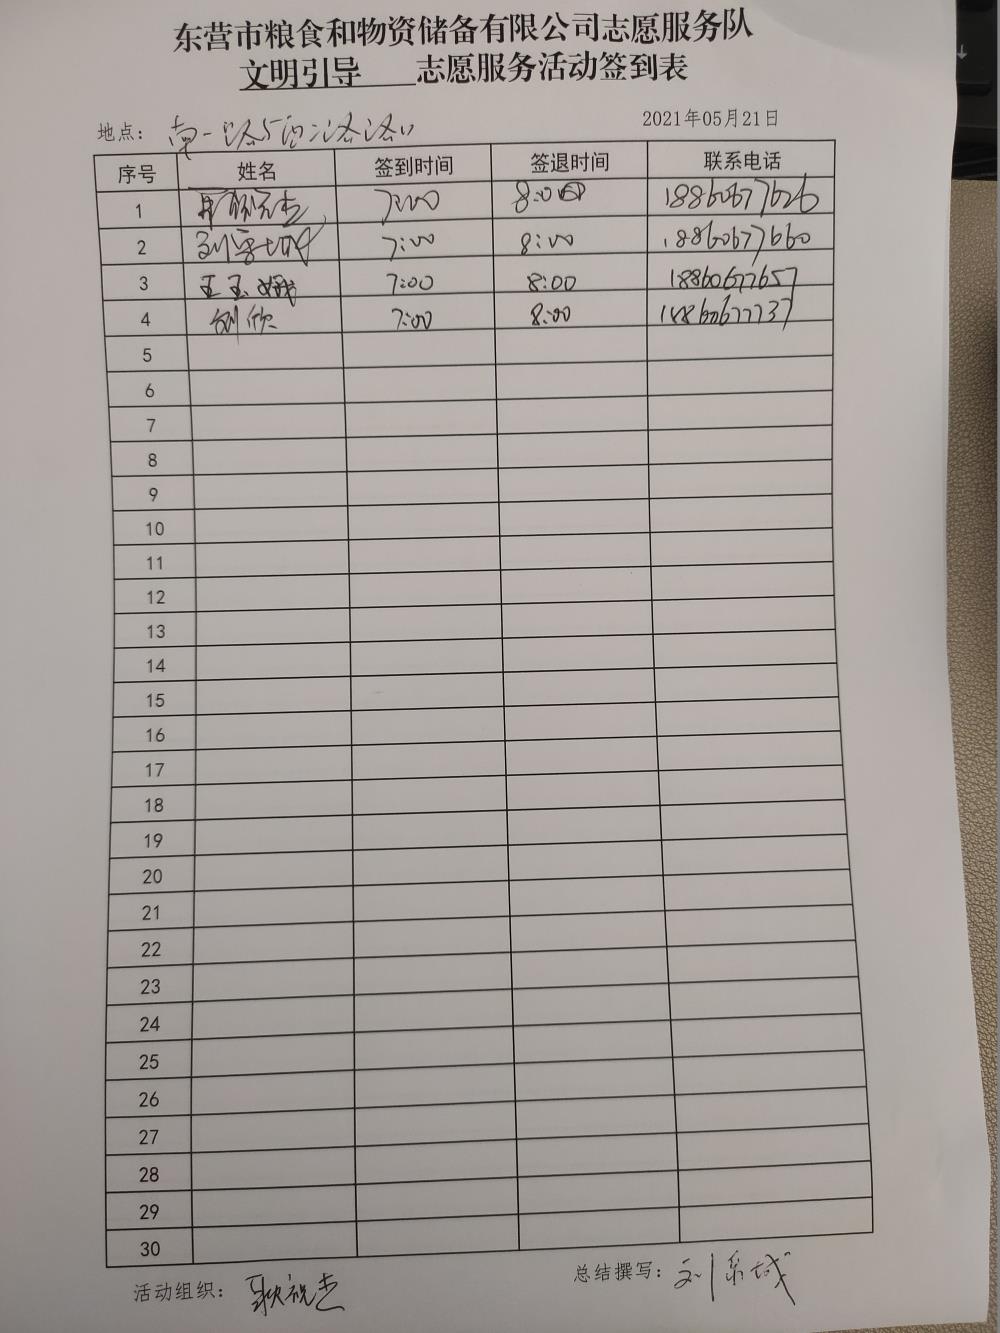 东营市粮食和物资储备有限公司志愿服务队
文明引导 志愿服务活动签到表
地点： 南一路与西二路路口 2021年05月21日
序号 姓名 签到时间 签退时间 联系电话
1 7:00 8:00 18860677626
2 7:00 8:00 18860677660
3 王玉娥 7:00 8:00 18860677657
4 刘欣 7:00 8:00 18860677737
5
6
7
8
9
10
11
12
13
14
15
16
17
18
19
20
21
22
23
24
25
26
27
28
29
30
活动组织： 总结撰写：